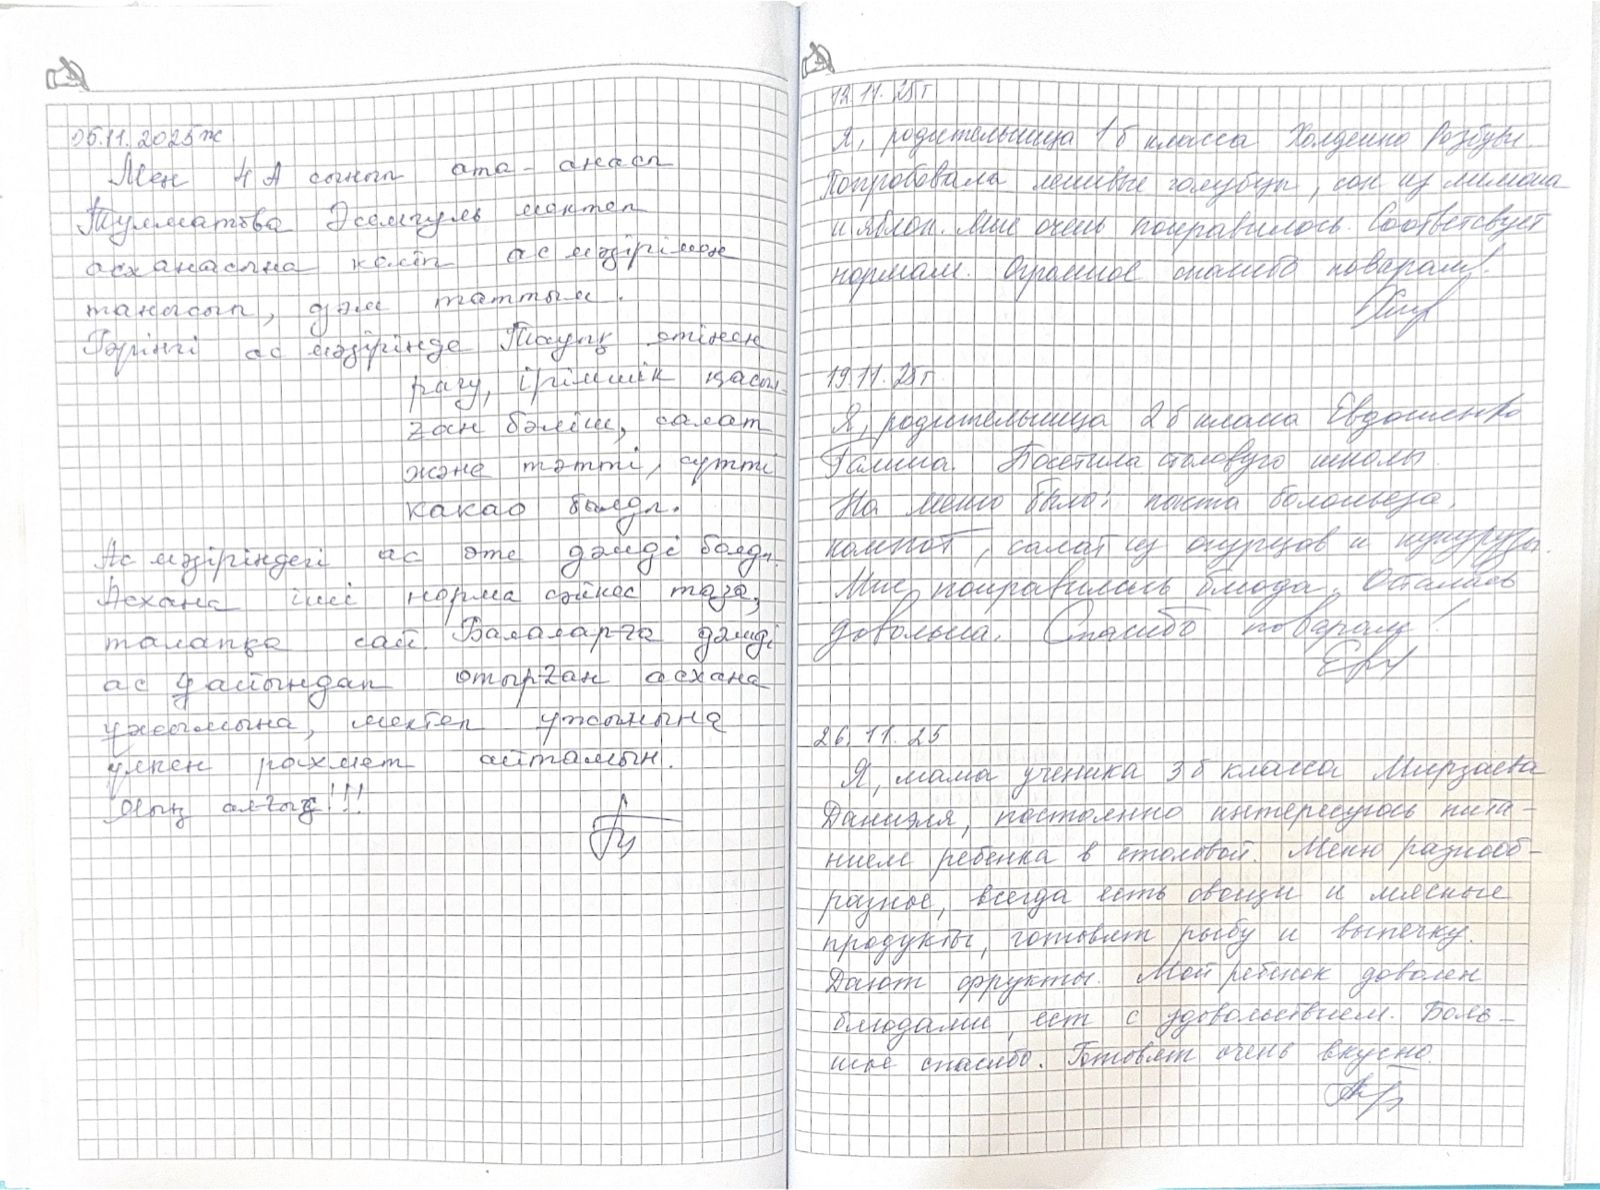 05.11.2025ж
Мен 4 А сынып ата-анасы
Тулматова Эсемгуль мектеп
асханасына келіп ас мәзірімен
танысып, дәм таттым.
Бүгінгі ас мәзірінде Тауық етінен
рагу, ірімшік қосыл-
ған бәліш, салат
және тәтті, сүтті
какао болды.
Ас мәзіріндегі ас өте дәмді болды.
Асхана іші норма сәйкес таза,
талапқа сай. Балаларға дәмді
ас дайындап отырған асхана
ұжымына, мектеп ұжымына
үлкен рахмет айтамын.
Мың алғыс!!!
12.11.25г
Я, родительница 1б класса Холденко
Попробовала ленивые голубцы, сок из лимона
и яблок. Мне очень понравилось. Соответсвует
нормам. Огромное спасибо поварам!
19.11.25г
Я, родительница 2б класса Евдошенко
Галина. Посетила столовую школы.
На меню было: паста болоньеза,
компот, салат из огурцов и кукурузы.
Мне понравились блюда. Осталась
довольна. Спасибо поварам!
26.11.25
Я, мама ученика 3б класса Мирзаева
Даниэля, постоянно интересуюсь пита-
нием ребенка в столовой. Меню разнооб-
разное, всегда есть овощи и мясные
продукты, готовят рыбу и выпечку.
Дают фрукты. Мой ребенок доволен
блюдами, ест с удовольствием. Боль-
шое спасибо. Готовят очень вкусно.